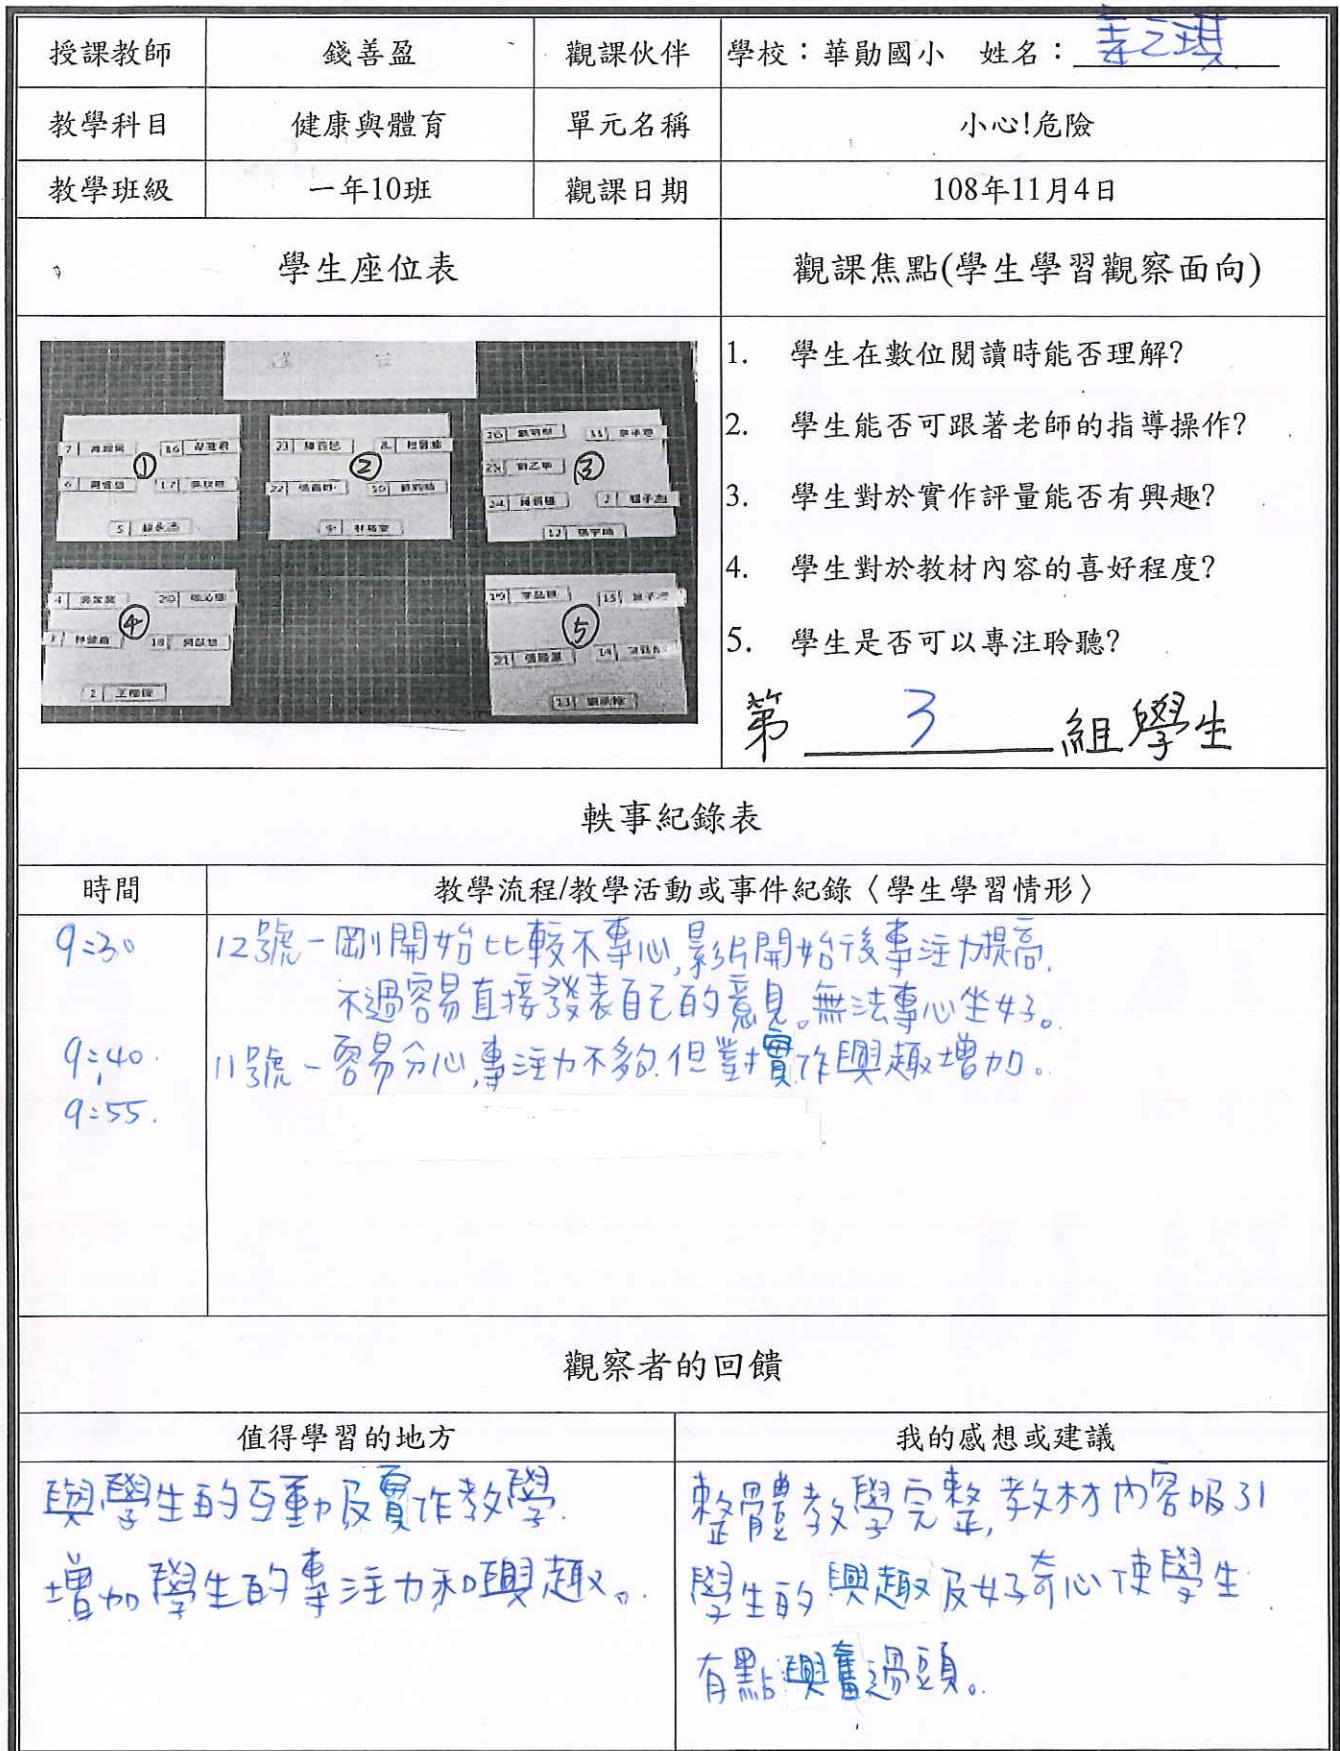 授課教師 錢善盈 觀課伙伴 學校：華勛國小 姓名：
教學科目 健康與體育 單元名稱 小心!危險
教學班級 一年10班 觀課日期 108年11月4日
學生座位表 觀課焦點(學生學習觀察面向)
① ② ③
④ ⑤
1. 學生在數位閱讀時能否理解?
2. 學生能否可跟著老師的指導操作?
3. 學生對於實作評量能否有興趣?
4. 學生對於教材內容的喜好程度?
5. 學生是否可以專注聆聽?
第 3 組學生
軼事紀錄表
時間 教學流程/教學活動或事件紀錄〈學生學習情形〉
9:30 12號－剛開始比較不專心,影片開始後專注力提高.
不過容易直接發表自己的意見。無法專心坐好。
9:40 11號－容易分心,專注力不夠.但對實作興趣增加。
9:55.
觀察者的回饋
值得學習的地方 我的感想或建議
與學生的互動及實作教學.
增加學生的專注力和興趣。
整體教學完整,教材內容吸引
學生的興趣及好奇心使學生
有點興奮過頭。